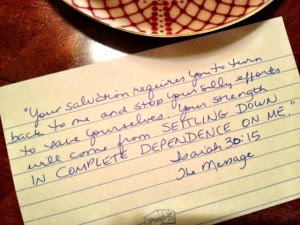 "Your salvation requires you to turn
back to me and stop your silly efforts
to save yourselves. Your strength
will come from SETTLING DOWN
IN COMPLETE DEPENDENCE ON ME."
Isaiah 30:15
The Message